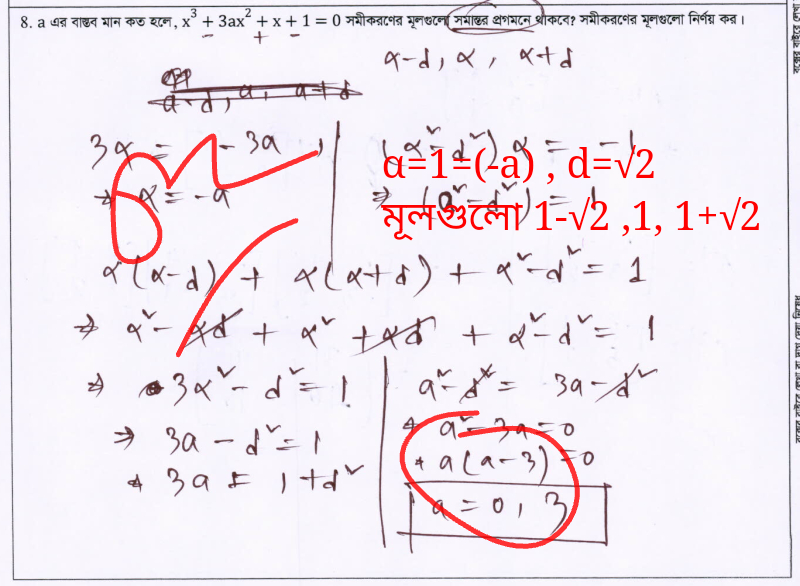 8. a এর বাস্তব মান কত হলে, x³ + 3ax² + x + 1 = 0 সমীকরণের মূলগুলো সমান্তর প্রগমনে থাকবে? সমীকরণের মূলগুলো নির্ণয় কর।
α-d, α, α+d
a-d, a, a+d
3α = -3a
(α²-d²) α = -1
α=1=(-a) , d=√2
⇒ α = -a
⇒ (a²-d²) = 1
মূলগুলো 1-√2 ,1, 1+√2
α(α-d) + α(α+d) + α²-d² = 1
⇒ α² - αd + α² + αd + α²-d² = 1
⇒ 3α² - d² = 1
⇒ 3a - d² = 1
⇒ 3a = 1+d²
a²-d² = 3a-d²
a²-3a=0
a(a-3)=0
a = 0, 3